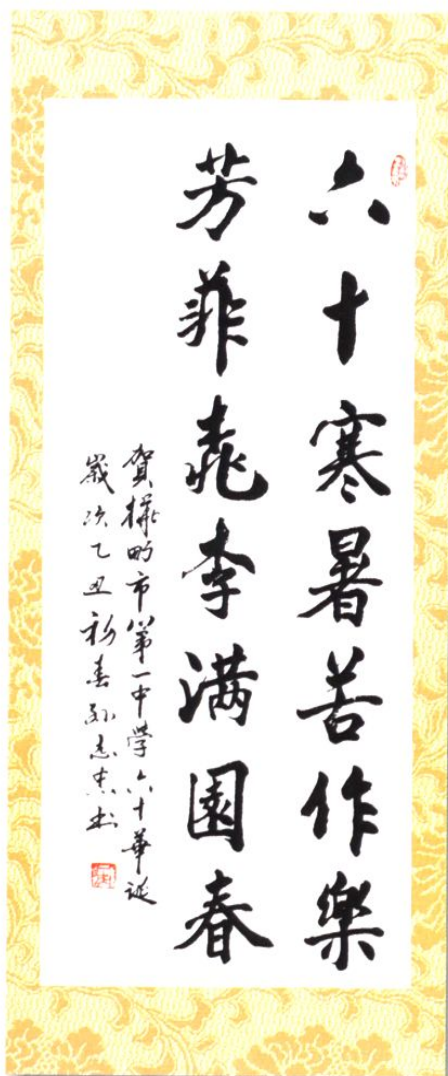 六十寒暑苦作樂
芳菲桃李满園春
賀樺甸市第一中學六十華誕
歲次乙丑初春孙志忠书